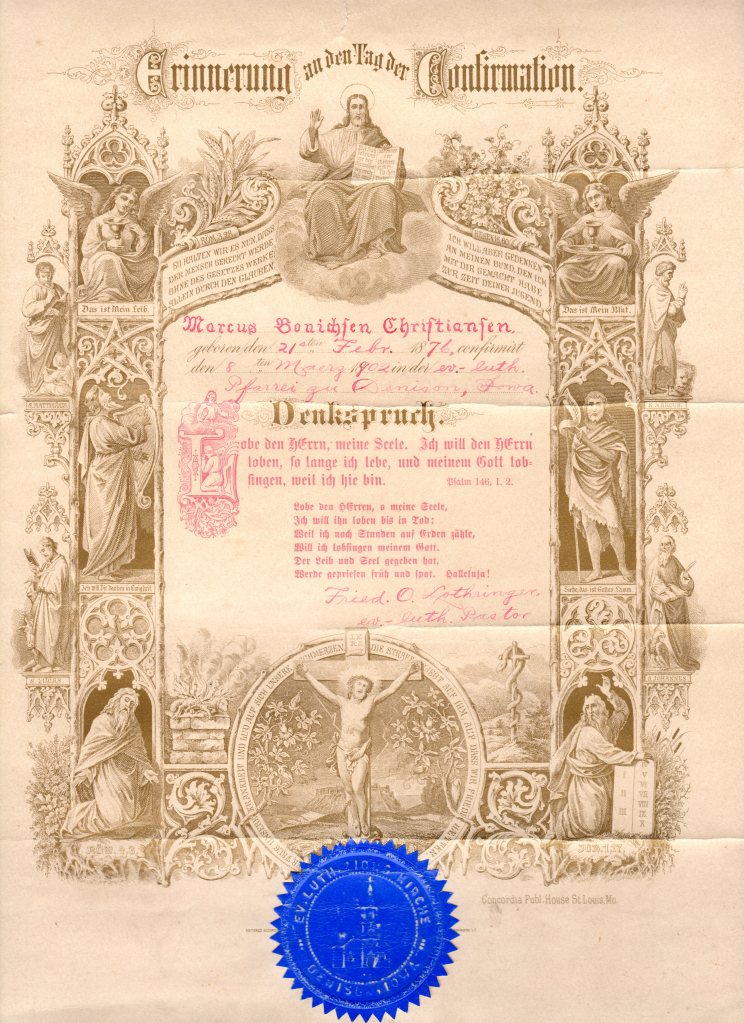 Erinnerung an den Tag der Confirmation.
RÖM. 3. 28.
SO HALTEN WIR ES NUN, DASS
DER MENSCH GERECHT WERDE
OHNE DES GESETZES WERKE,
ALLEIN DURCH DEN GLAUBEN.
ICH WILL ABER GEDENKEN
AN MEINEN BUND, DEN ICH
MIT DIR GEMACHT HABE
ZUR ZEIT DEINER JUGEND
Das ist Mein Leib.
Das ist Mein Blut.
Marcus Bonichsen Christiansen,
geboren den 21sten Febr. 1876, confirmirt
den 8ten Maerz 1902 in der ev.-luth.
Pfarrei zu Denison, Iowa.
Denkspruch.
Lobe den HErrn, meine Seele. Ich will den HErrn
loben, so lange ich lebe, und meinem Gott lob-
singen, weil ich hie bin. Psalm 146, 1. 2.
Lobe den HErren, o meine Seele,
Ich will ihn loben bis in Tod;
Weil ich noch Stunden auf Erden zähle,
Will ich lobsingen meinem Gott.
Der Leib und Seel gegeben hat,
Werde gepriesen früh und spat. Halleluja!
Fried. O. Lothringer
ev.-luth. Pastor
S. MATTHÄUS
S. MARCUS
S. LUCAS
S. JOHANNES
Siehe, das ist Gottes Lamm.
FÜRWAHR ER TRUG UNSERE KRANKHEIT UND LUD AUF SICH UNSERE SCHMERZEN. DIE STRAFE LIEGT AUF IHM, AUF DASS WIR FRIEDE
I II III
V VI VII VIII IX X
Concordia Publ. House St. Louis, Mo.
EV. LUTH. ZIONS KIRCHE
DENISON, IOWA